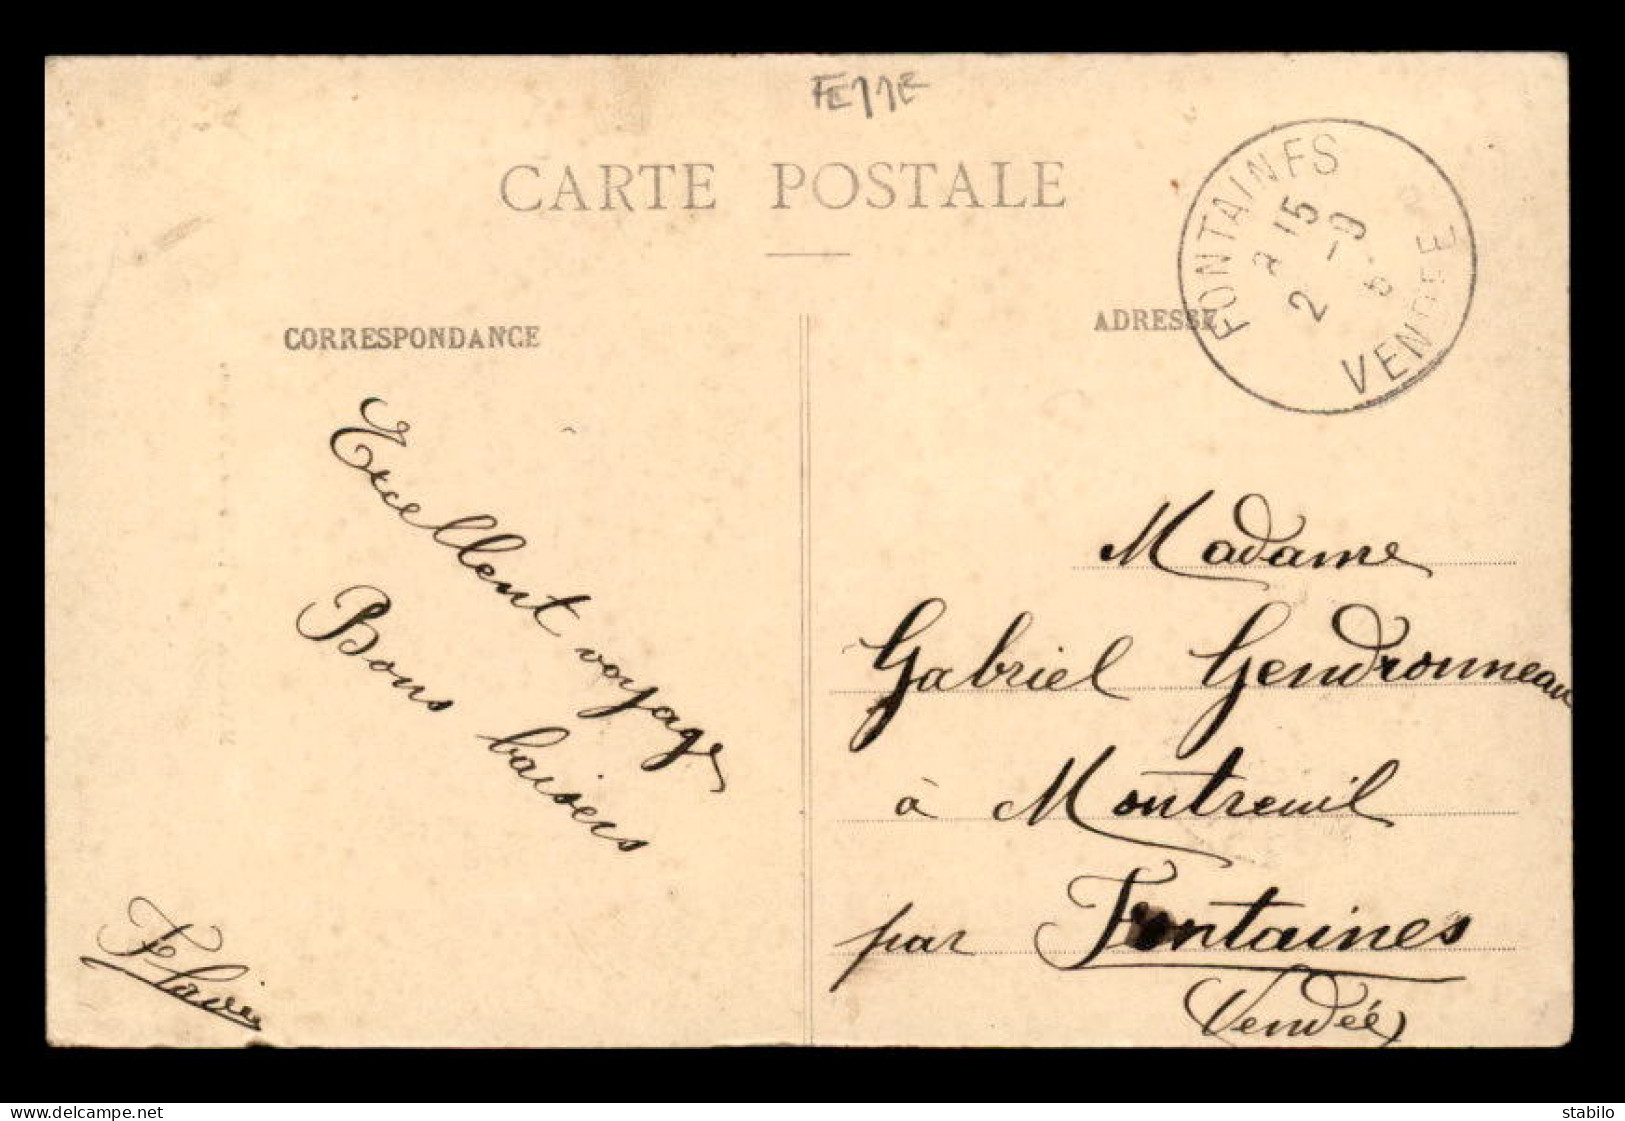 CARTE POSTALE
CORRESPONDANCE
ADRESSE
FONTAINES
15
2 - 9
VENDEE
Excellent voyage
Bons baisers
Flavie
Madame
Gabriel Gendronneau
à Montreuil
par Fontaines
Vendée
delcampe.net
stabilo